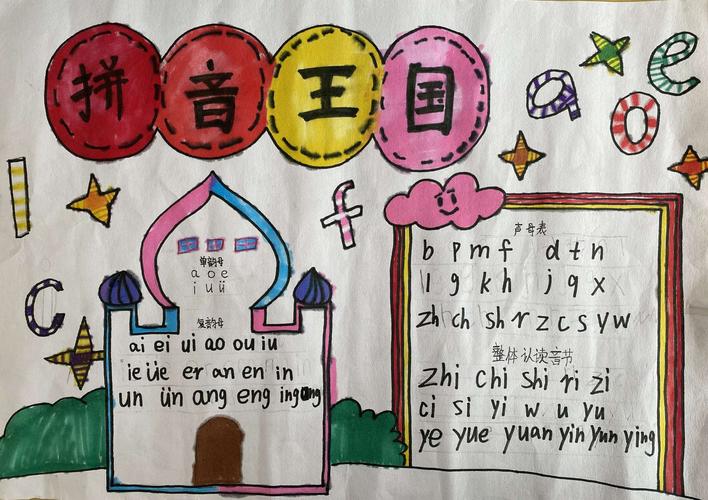 拼音王国
a o e
l
f
c
单韵母
a o e
i u ü
复韵母
ai ei ui ao ou iu
ie üe er an en in
un ün ang eng ing ong
声母表
b p m f d t n
l g k h j q x
zh ch sh r z c s y w
整体认读音节
zhi chi shi ri zi
ci si yi w u yu
ye yue yuan yin yun ying